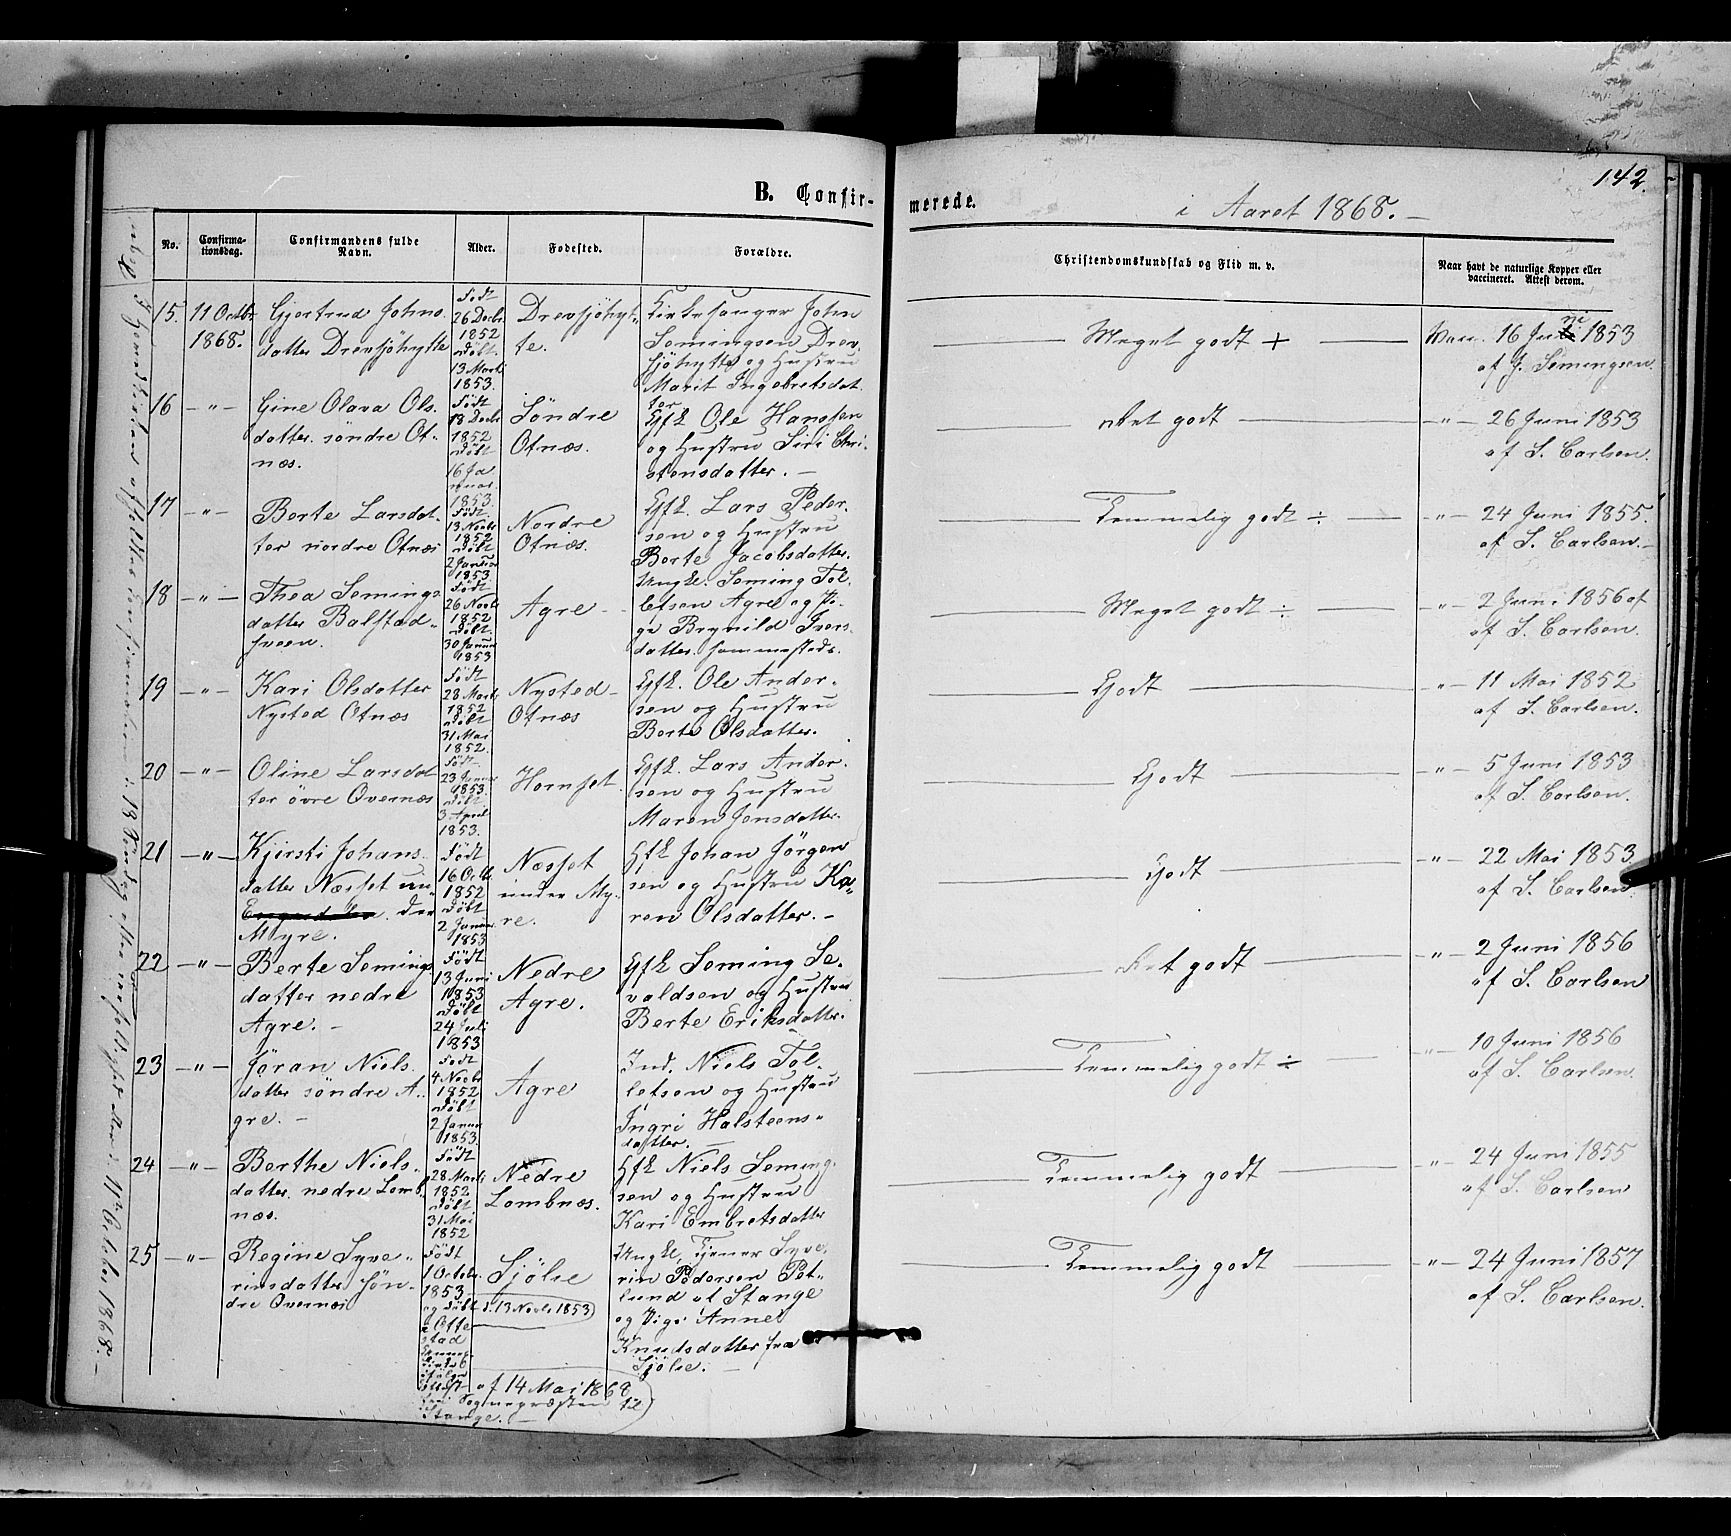 142.
B. Confir-
merede.
i Aaret 1868. —
No.
Confirma-
tionsdag.
Confirmandens fulde
Navn.
Alder.
Fødested.
Forældre.
Christendomskundskab og Flid m. v.
Naar havt de naturlige Kopper eller
vaccineret. Attest derom.
15.
11 Octbr
1868.
Gjertrud Johns-
datter Drevsjöhytte
Födt
26 Decbr
1852
Döbt
13 Marts
1853.
Drevsjöhyt-
te.
Kirkesanger John
Semingsen Drev-
sjöhytte og Hustru
Marit Ingebretsdat-
ter
Meget godt +
Vacc. 16 Juni 1853
af J. Semingsen.
16
— " —
Gine Olava Ols-
datter söndre Ot-
næs.
Födt
18 Decbr
1852
Döbt
16 Ja-
nuar
1853.
Söndre
Otnæs.
Gfk Ole Hanssen
og Hustru Siri Chri-
stensdatter. —
Ret godt
" — 26 Juni 1853
af S. Carlsen.
17
— " —
Berte Larsdat-
ter nordre Otnæs
Födt
13 Novbr
1852
Döbt
2 Januar
1853
Nordre
Otnæs.
Gfk. Lars Peder-
sen og Hustru
Berte Jacobsdatter.
Temmelig godt ÷
" — 24 Juni 1855.
af S. Carlsen. —
18
— " —
Thea Semings-
datter Balstad-
sveen.
Födt
26 Novbr
1852
Döbt
30 Januar
1853
Agre
Ungk. Seming Tol-
lefsen Agre og Pi-
ge Brynild Ivers-
datter sammesteds.
Meget godt ÷
" — 2 Juni 1856 af
af S. Carlsen.
19
— " —
Kari Olsdatter
Nysted Otnæs
Födt
28 Marts
1852
Döbt
31 Mai
1852.
Nysted-
Otnæs
Gfk. Ole Ander-
sen og Hustru
Berte Olsdatter.
Godt
" — 11 Mai 1852
af S. Carlsen.
20
— " —
Oline Larsdat-
ter övre Overnæs
Födt
23 Januar
1853.
Döbt
3 April
1853.
Hornset.
Gfk. Lars Ander-
sen og Hustru
Maren Jonsdatter.
Godt
" — 5 Juni 1853
af S. Carlsen.
21
— " —
Kjersti Johans-
datter Næsset un-
der
Myre.
Födt
16 Octbr
1852
Döbt
2 Januar
1853
Næsset
under My-
re.
Gfk Johan Jörgen-
sen og Hustru Ka-
ren Olsdatter. —
Godt
" — 22 Mai 1853.
af S. Carlsen
22
— " —
Berte Semings-
datter nedre
Agre. —
Födt
13 Juni
1853
Döbt
24 Juli
1853
Nedre
Agre.
Gfk Seming Se-
valdsen og Hustru
Berte Eriksdatter.
Ret godt
" — 2 Juni 1856
af S. Carlsen
23
— " —
Jöran Niels-
datter söndre A-
gre. —
Födt
4 Novbr
1852
Döbt
2 Januar
1853.
Agre
Ind. Niels Tol-
lefsen og Hustru
Ingri Halsteens-
datter. —
Temmelig godt ÷
" — 10 Juni 1856
af S. Carlsen.
24
— " —
Berthe Niels-
datter nedre Lomb-
næs.
Födt
28 Marts
1852
Döbt
31 Mai
1852
Nedre
Lombnæs.
Gfk Niels Seming-
sen og Hustru
Kari Embretsdatter
Temmelig godt
" — 24 Juni 1855
af S. Carlsen
25
— " —
Regine Syve-
rinsdatter Sön-
dre Overnæs
Födt
1 Octobr.
1853
og döbt d. 13 Novbr 1853
i Otte-
stad
Sjölie
Ungk. Tjener Syve-
rin Pedersen Pet-
lund af Stange
og Pige Anne
Knudsdatter fra
Sjölie. —
af 14 Mai 1868
Sognepræsten til
Stange. —
Temmelig godt
" — 24 Juni 1857
af S. Carlsen.
Octobr 1868. —